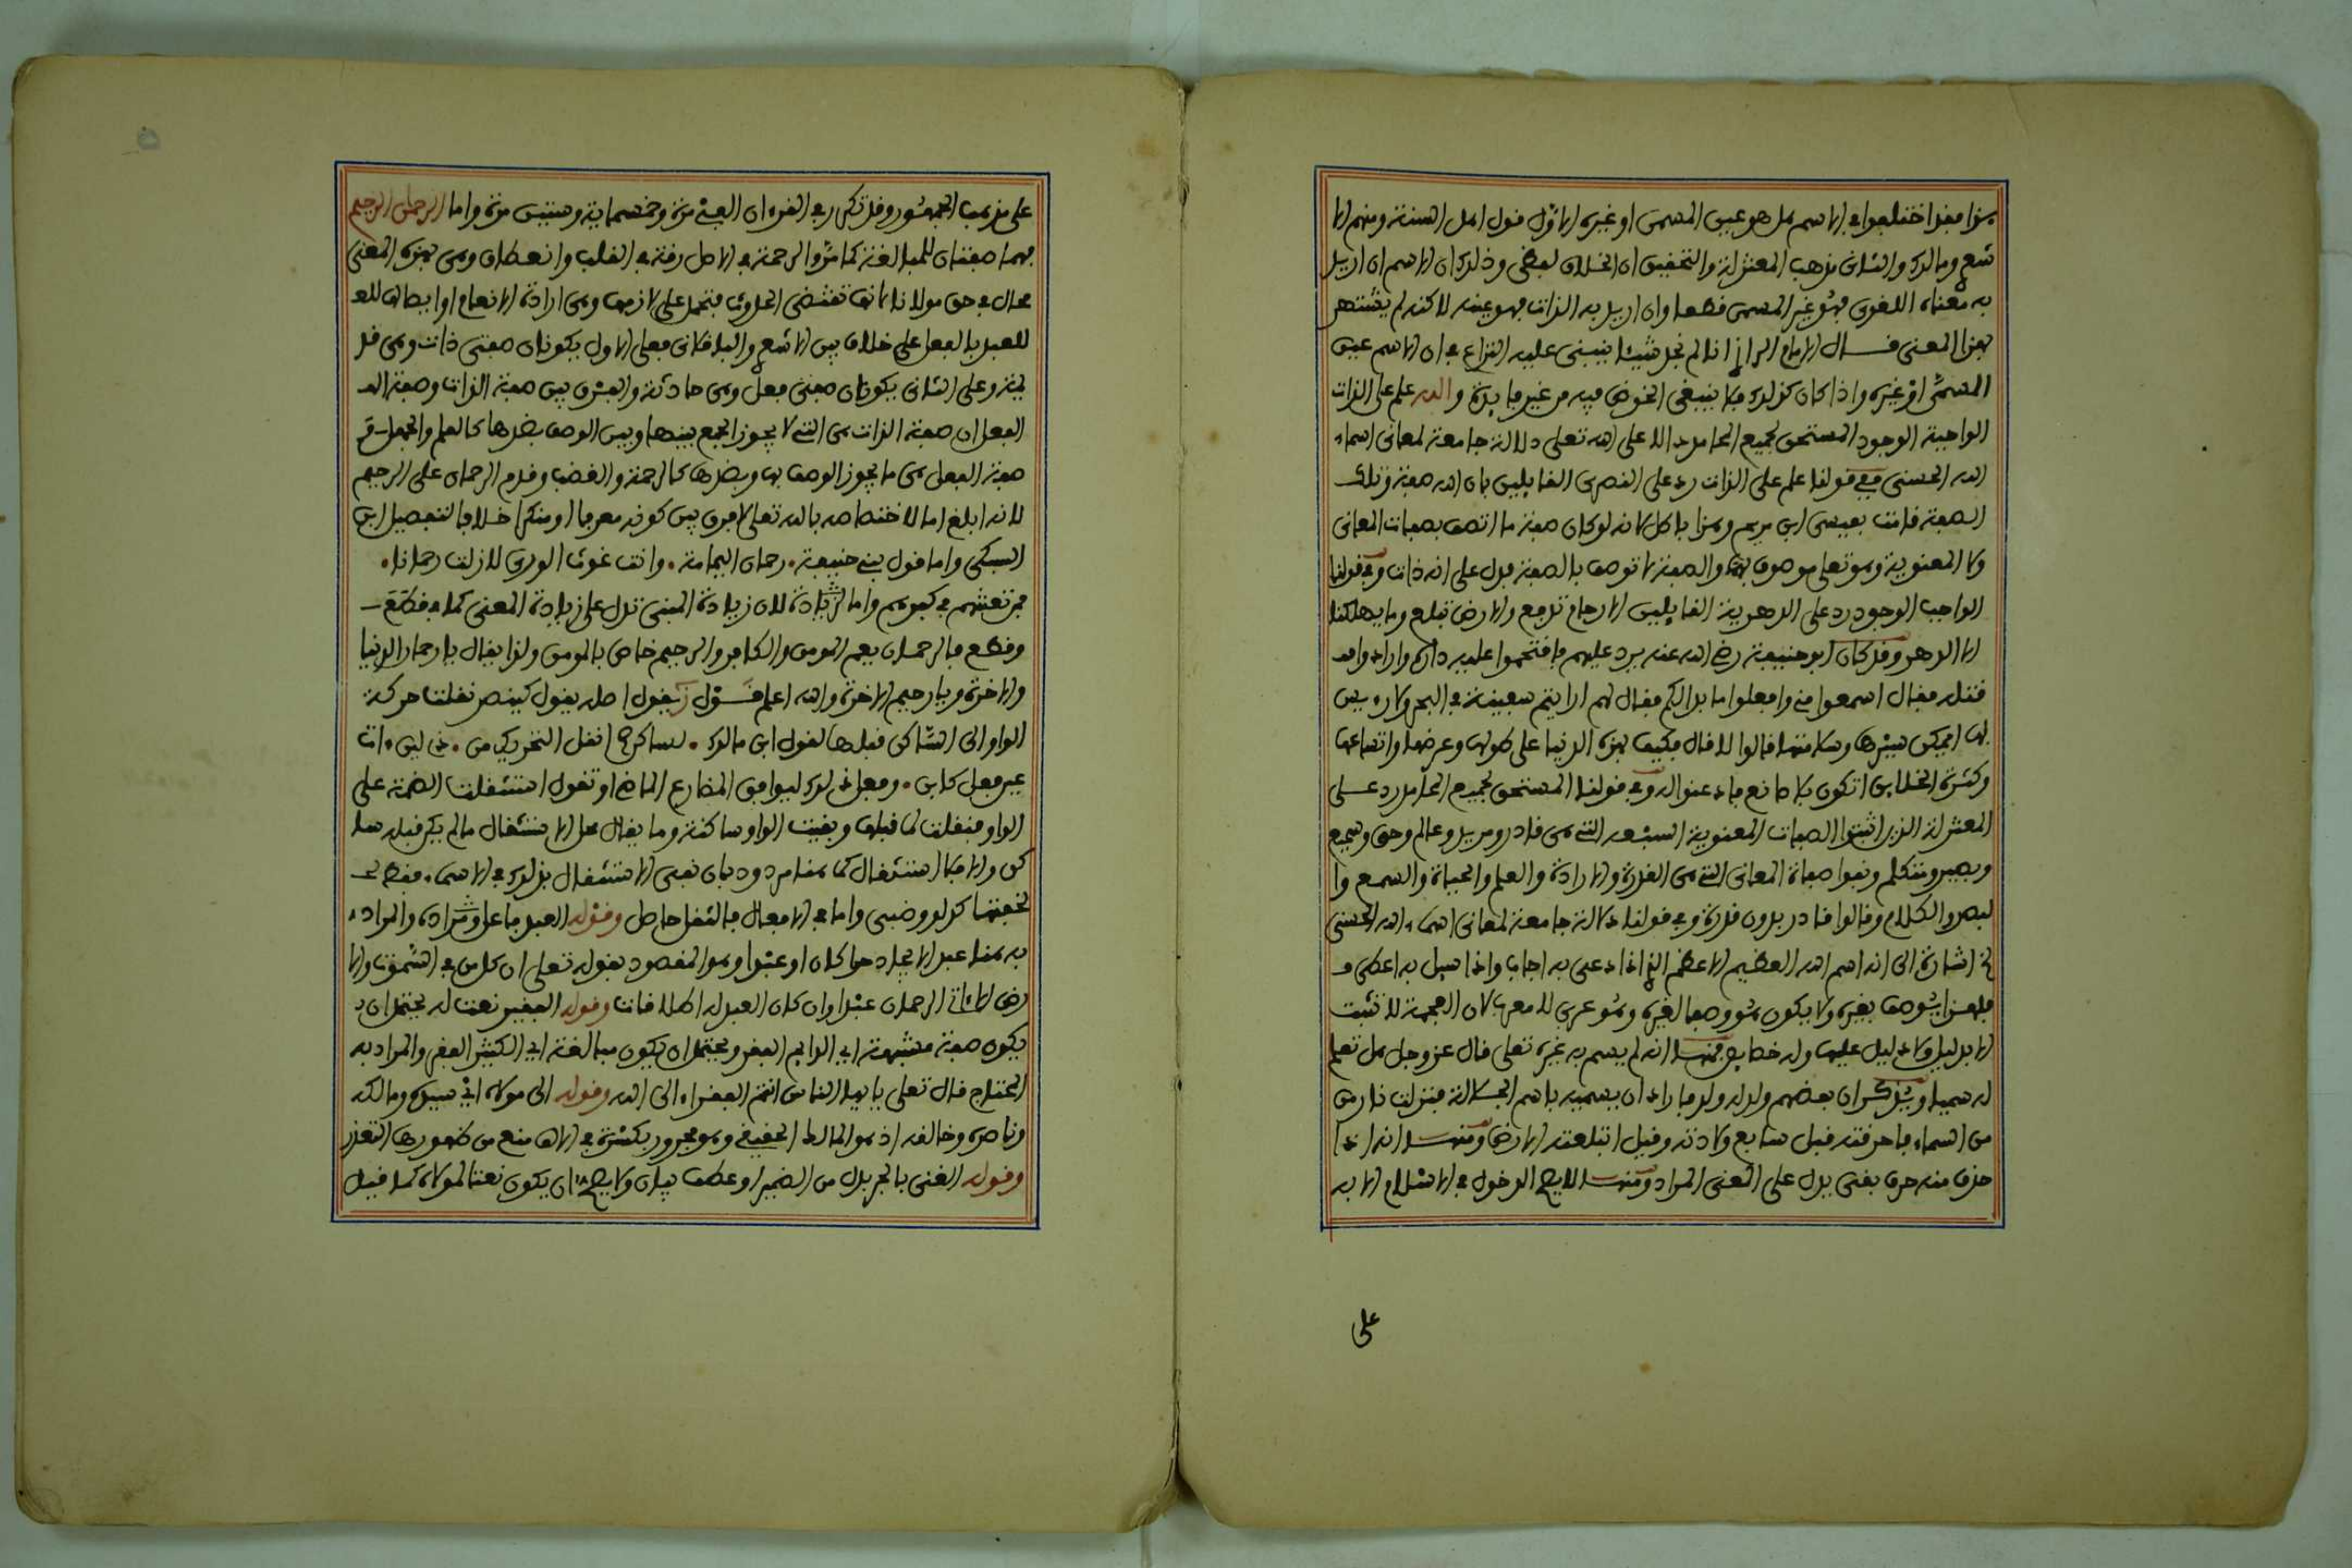 هذا فقد اختلفوا في الاسم هل هو عين المسمى او غيره الاول قول اهل السنة ومنهم الا
شعري ومالك والثاني مذهب المعتزلة والتحقيق ان الخلاف لفظي وذلك ان الاسم ان اريد
به معناه اللغوي فهو غير المسمى قطعا وان اريد به الذات فهو عينه لاكنه لم يشتهر
بهذا المعنى قال الامام الرازي انا لم نجد شيئا ينبني عليه النزاع في ان الاسم عين
المسمى او غيره واذا كان كذلك فلا ينبغي الخوض فيه من غير فايدة والله علم على الذات
الواجبة الوجود المستحق لجميع المحامد الا على الله تعلى دلالة جامعة لمعاني اسماء
الله الحسنى ففي قولنا علم على الذات رد على النصرى القايلين بان الله صفة وتلك
الصفة قامت بعيسى ابن مريم وهذا باطل لانه لو كان صفة ما اتصف بصفات المعاني
ولا المعنوية وهو تعلى موصوف بهما والصفة لا توصف بالصفة فدل على انه ذات وفي قولنا
الواجب الوجود رد على الدهرية القايلين الارحام تدفع والارض تبلع وما يهلكنا
الا الدهر وقد كان ابو حنيفة رضي الله عنه يرد عليهم فاقتحموا عليه داره وارادوا
قتله فقال اسمعوا مني وافعلوا ما بدا لكم فقال لهم ارايتم سفينة في البحر ولا ريس
لها ايمكن سيرها وسلامتها قالوا لا قال فكيف بهذه الدنيا على طولها وعرضها واتساعها
وكثرة الخلايق اتكون بلا صانع فاذعنوا له وفي قولنا المستحق لجميع المحامد رد على
المعتزلة الذين اثبتوا الصفات المعنوية السبعة التي هي قادر ومريد وعالم وحي وسميع
وبصير ومتكلم ونفوا صفاة المعاني التي هي القدرة والارادة والعلم والحياة والسمع وا
لبصر والكلام وقالوا قادر بدون قدرة وفي قولنا دلالة جامعة لمعاني اسماء الله الحسنى
اشارة الى انه اسم الله العظيم الاعظم الذي اذا دعي به اجاب واذا سيل به اعطى و
فلهذا يوصف بغيره ولا يكون هو وصفا لغيره وهو عربي لا معرب لان العجمة لا تثبت
الا بدليل ولا دليل عليها وله خصايص فمنها انه لم يسم به غيره تعلى قال عز وجل هل تعلم
له سميا ويذكر ان بعضهم ولد له ولد فاراد ان يسميه باسم الجلالة فنزلت نار من
من السماء فاحرقته قبل سابع ولادته وقيل ابتلعته الارض ومنها انه اذا
حذف منه حرف بقي يدل على المعنى المراد ومنها لا يصح الدخول في الاسلام الا به
على
على مذهب الجمهور وقد تكرر في القرءان الفي مرة وخمسماية وستين مرة واما الرحمان الرحيم
فهما صفتان للمبالغة كما مر والرحمة في الاصل رقة في القلب وانعطاف وهي بهذا المعنى
محال في حق مولانا لانها تقتضي الحدوث فتحمل على لازمها وهي ارادة الانعام او ايصاله للعـ
للعبد بالفعل على خلاف بين الاشعري والباقلاني فعلى الاول يكونان صفتي ذات وهي قد
يمة وعلى الثاني يكونان صفتي فعل وهي حادثة والفرق بين صفة الذات وصفة الفـ
الفعل ان صفة الذات هي التي لا يجوز الجمع بينها وبين الوصف بضدها كالعلم والجهل
صفة الفعل هي ما يجوز الوصف بها وبضدها كالرحمة والغضب وقدم الرحمان على الرحيم
لانه ابلغ اما لاختصاصه بالله تعلى لا فرق بين كونه معرفا او منكرا خلافا لتفصيل ابن
السبكي واما قول بني حنيفة رحمان اليمامة وانت غوث الورى لا زلت رحمانا
فمن تعنتهم في كفرهم واما لزيادة لان زيادة المبنى تدل على زيادة المعنى كما في قطع
وقطع فالرحمان يعم المومن والكافر والرحيم خاص بالمومن ولذا يقال يا رحمان الدنيا
والاخرة ويا رحيم الاخرة والله اعلم قوله يقول اصله يقول كينصر نقلت حركة
الواو الى الساكن قبلها لقول ابن مالك لساكن صح انقل التحريك من ذي لين ءات
عين فعل كابن وفعل ذلك ليوافق المضارع الماضي او تقول استثقلت الضمة على
الواو فنقلت لما قبلها وبقيت الواو ساكنة وما يقال محل الاستثقال ما لم يكن قبله سا
كن والا فلا استثقال كما هنا مردود بان نفي الاستثقال بذلك في الاسماء فقط
لخفتها كدلو وضبي واما في الافعال فالثقل حاصل وقوله العبد فاعل ومراده والمراد
به هنا عبد الايجاد حرا كان او عبدا وهو المقصود بقوله تعلى ان كل من في السموات والا
رض الا ءاتي الرحمان عبدا وان كان العبد له اطلاقات وقوله الفقير نعت له يحتمل ان
يكون صفة مشبهة اي الدايم الفقر ويحتمل ان يكون مبالغة اي الكثير الفقر والمراد به
المحتاج قال تعلى يا ايها الناس انتم الفقراء الى الله وقوله الى مولاه اي سيده ومالكه
وناصره وخالقه اذ هو المالك الحقيقي وهو مجرور بكسرة في الالف منع من ظهورها التعذر
وقوله الغني بالجر بدل من الضمير او عطف بيان ولا يصح ان يكون نعتا لمولاه كما قيل